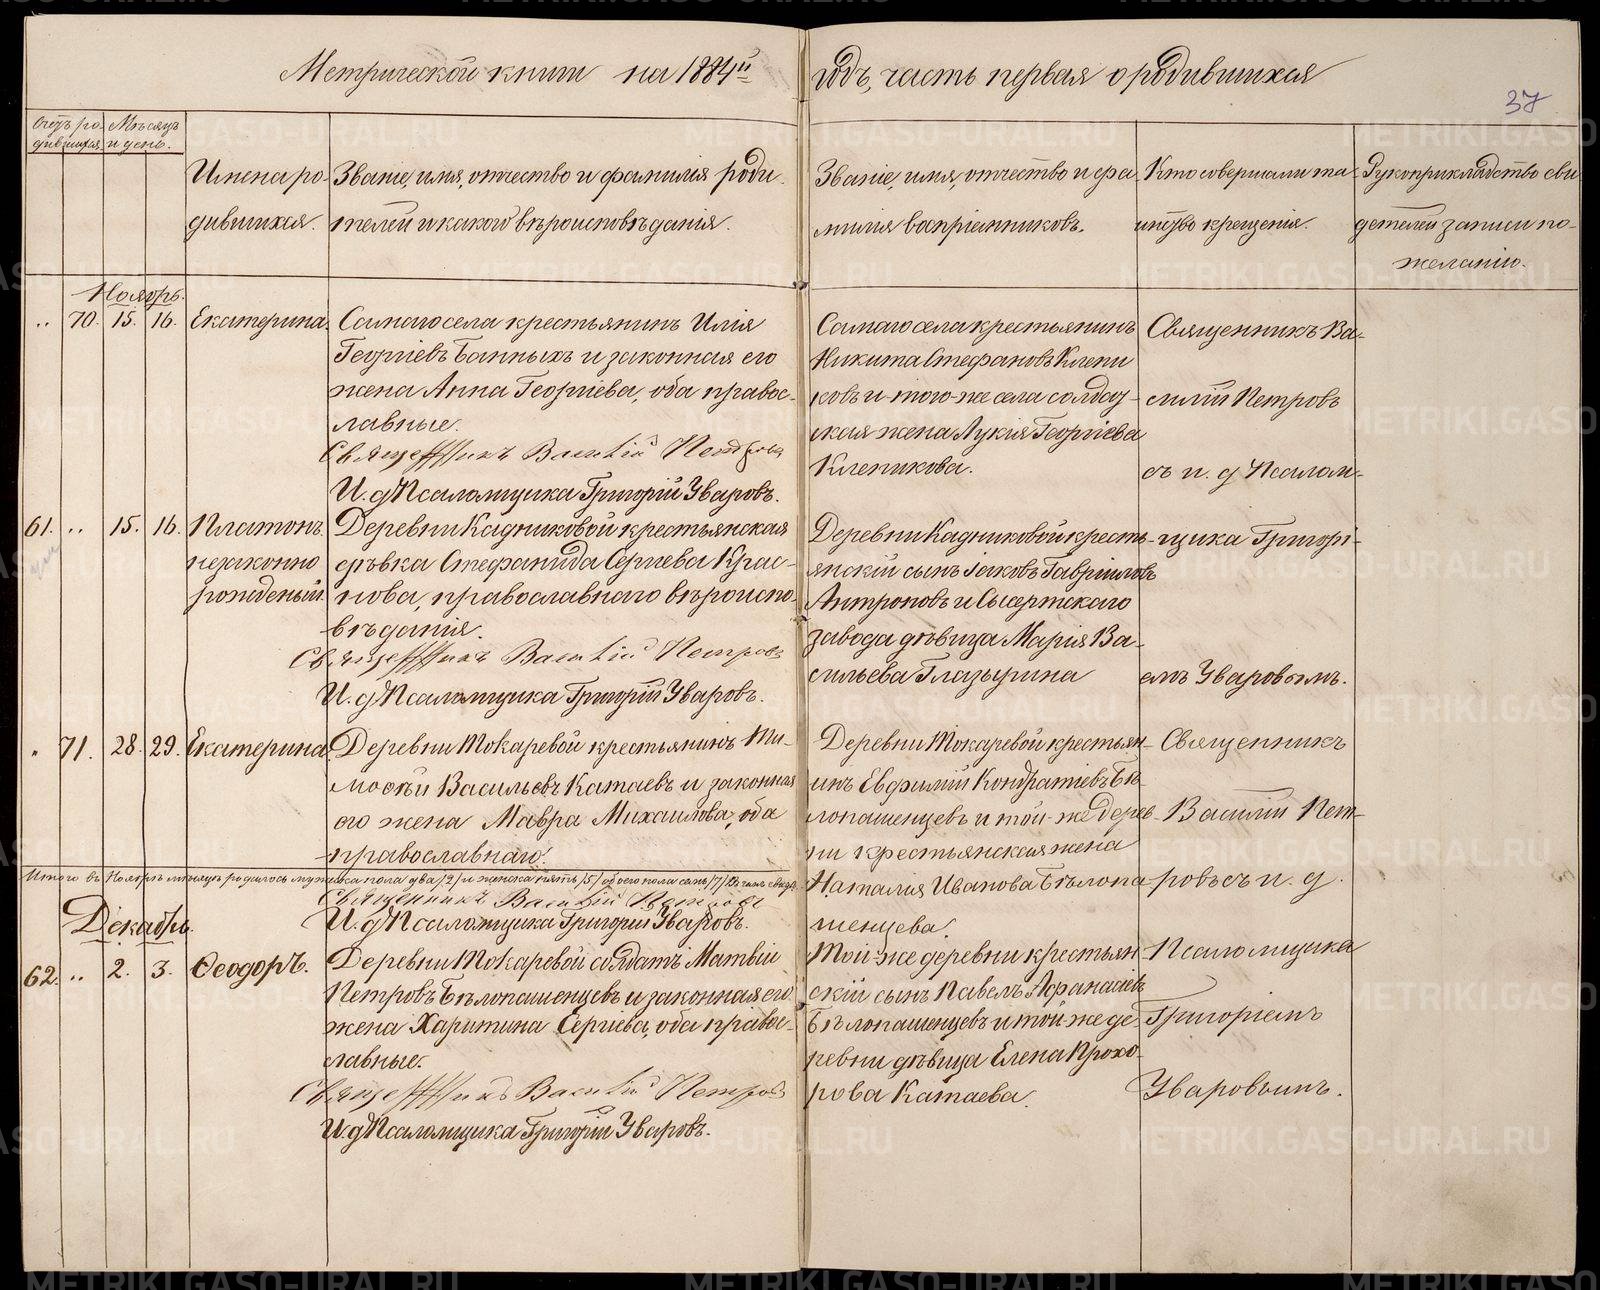 Метрической книги на 1884й
годъ, часть первая о родившихся
37
Счетъ ро-
дившихся.
Мѣсяцъ
и день.
Имена ро-
дившихся.
Званіе, имя, отчество и фамилія роди-
телей и какого вѣроисповѣданія.
Званіе, имя, отчество и фа-
милія воспріемниковъ.
Кто совершалъ та-
инство крещенія.
Рукоприкладство сви-
дѣтелей записи по-
желанію.
Ноябрь.
„ 70. 15. 16. Екатерина.
Самаго села крестьянинъ Илія
Георгіевъ Банныхъ и законная его
жена Анна Георгіева, оба правос-
лавные.
Священникъ Василій Петровъ
И. д. Псаломщика Григорій Уваровъ.
Самаго села крестьянинъ
Никита Стефановъ Клепи
ковъ и того-же села солдат-
ская жена Лукія Георгіева
Клепикова.
Священникъ Ва-
силій Петровъ
съ и. д. Псалом-
61. „ 15. 16. Платонъ
незаконно
рожденый.
Деревни Кадниковой крестьянская
дѣвка Стефанида Сергіева Крас-
нова, православнаго вѣроиспо-
вѣданія.
Священникъ Василій Петровъ
И. д. Псаломщика Григорій Уваровъ.
Деревни Кадниковой кресть-
янскій сынъ Іаковъ Гавріиловъ
Антроповъ и Сысертскаго
завода дѣвица Марія Ва-
сильева Глазырина
щика Григорі-
емъ Уваровымъ.
„ 71. 28. 29. Екатерина.
Деревни Токаревой крестьянинъ Ти-
мофей Васильевъ Катаевъ и законная
его жена Мавра Михаилова, оба
православнаго.
Деревни Токаревой крестьян-
инъ Евфимій Кондратіевъ Бѣ-
лопашенцевъ и той-же дерев-
ни крестьянская жена
Наталія Иванова Бѣлопа
шенцева.
Священникъ
Василій Пет-
ровъ съ и. д.
Итого въ Ноябрѣ мѣсяцѣ родилось мужска пола два /2/ и женска пять /5/ обоего пола семь /7/
Священникъ Василій Петровъ
И. д. Псаломщика Григорій Уваровъ.
Декабрь.
62. „ 2. 3. Ѳеодоръ.
Деревни Токаревой солдатъ Матвій
Петровъ Бѣлопашенцевъ и законная его
жена Харитина Сергіева, оба правос-
лавные.
Священникъ Василій Петровъ
И. д. Псаломщика Григорій Уваровъ.
Той-же деревни крестьян
скій сынъ Павелъ Афанасіевъ
Бѣлопашенцевъ и той-же де-
ревни дѣвица Елена Прохо-
рова Катаева.
Псаломщика
Григоріемъ
Уваровымъ.
METRIKI.GASO-URAL.RU